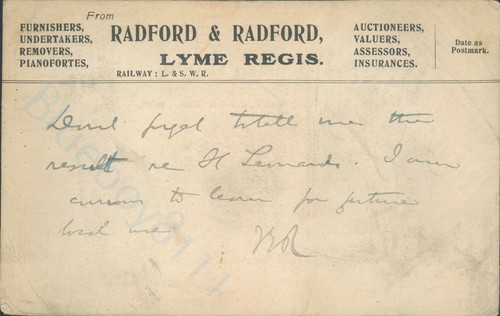 From
FURNISHERS,
UNDERTAKERS,
REMOVERS,
PIANOFORTES,
RADFORD & RADFORD,
LYME REGIS.
RAILWAY: L. & S. W. R.
AUCTIONEERS,
VALUERS,
ASSESSORS,
INSURANCES.
Date as
Postmark.
Don't forget to tell me the
result re St Leonards. I am
curious to learn for future
local use
Blueboy8111